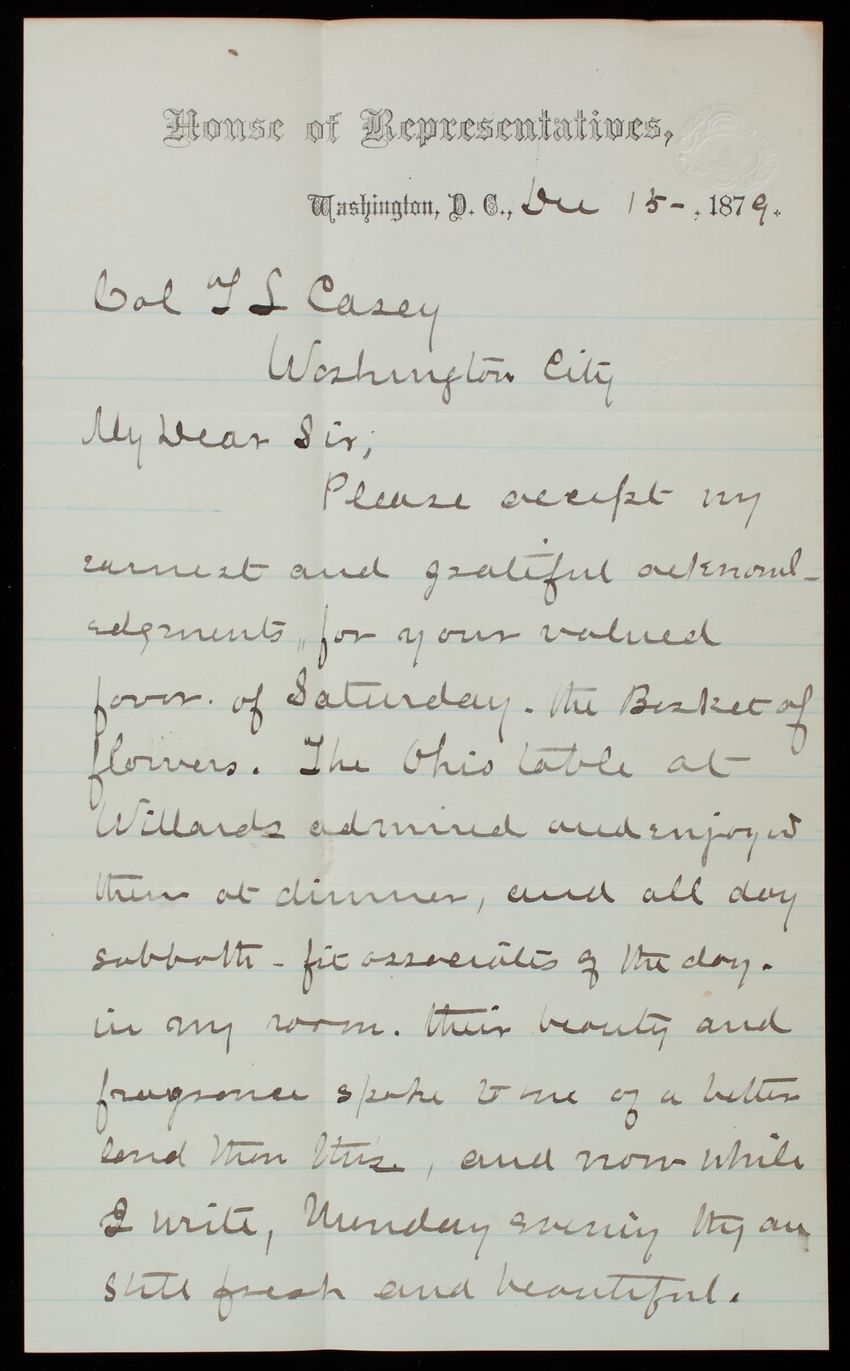 House of Representatives,
Washington, D. C., Dec 15-, 1879.
Col T L Casey
Washington City
My Dear Sir,
Please accept my
earnest and grateful acknowl-
edgments, for your valued
favor. of Saturday. the Basket of
flowers. The Ohio table at
Willards admired and enjoyed
them at dinner, and all day
sabbath - fit associates of the day.
in my room. their beauty and
fragrance spoke to me of a better
land than this, and now while
I write, Monday evening they are
still fresh and beautiful.